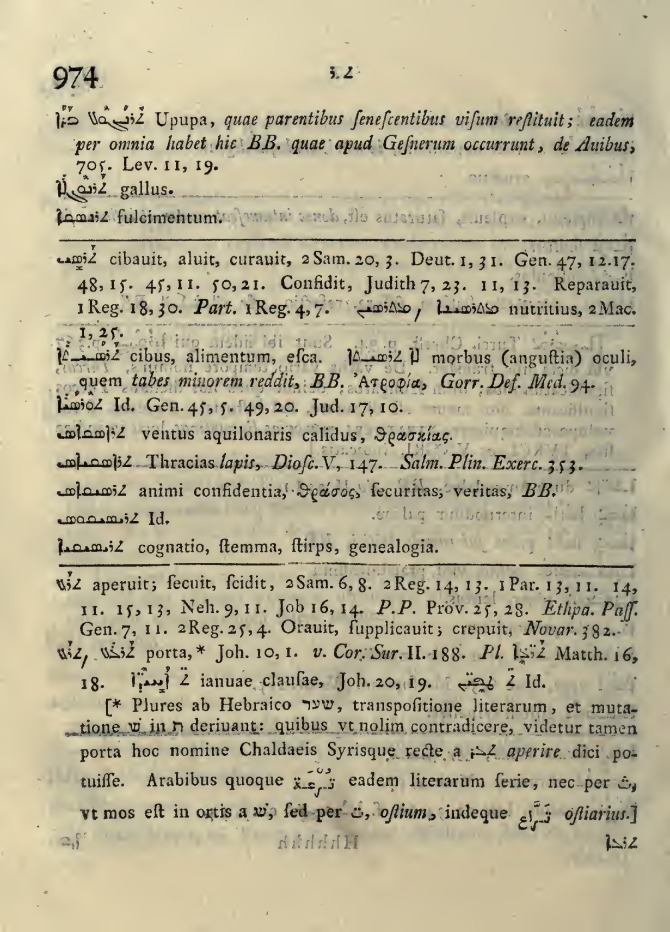 974 ܬܪ
ܬܪܢܓܘܠ ܒܪܐ Upupa, quae parentibus ſeneſcentibus viſum reſtituit; eadem
per omnia habet hic BB. quae apud Geſnerum occurrunt, de Auibus,
705. Lev. 11, 19.
gallus.
fulcimentum.
ܬܪܣܝ cibauit, aluit, curauit, 2 Sam. 20, 3. Deut. 1, 31. Gen. 47, 12. 17.
48, 15. 45, 11. 50, 21. Confidit, Judith 7, 23. 11, 13. Reparauit,
1 Reg. 18, 30. Part. 1 Reg. 4, 7. nutritius, 2 Mac.
1, 25.
ܬܪܣܝܬܐ cibus, alimentum, eſca. ܠܐ ܬܪܣܝܬܐ morbus (anguſtia) oculi,
quem tabes minorem reddit, BB. Ἀτροφία, Gorr. Def. Med. 94.
ܬܘܪܣܝܐ Id. Gen. 45, 5. 49, 20. Jud. 17, 10.
ventus aquilonaris calidus, Θρασκίας.
Thracias lapis, Dioſc. V, 147. Salm. Plin. Exerc. 353.
animi confidentia, Θράσος, ſecuritas, veritas, BB.
Id.
cognatio, ſtemma, ſtirps, genealogia.
ܬܪܥ aperuit; ſecuit, ſcidit, 2 Sam. 6, 8. 2 Reg. 14, 13. 1 Par. 13, 11. 14,
11. 15, 13, Neh. 9, 11. Job 16, 14. P.P. Prov. 25, 28. Ethpa. Paſſ.
Gen. 7, 11. 2 Reg. 25, 4. Orauit, ſupplicauit; crepuit, Novar. 382.
ܬܪܥ, ܬܪܥܐ porta, * Joh. 10, 1. v. Cor. Sur. II. 188. Pl. ܬܪ̈ܥܐ Matth. 16,
18. ianuae clauſae, Joh. 20, 19. Id.
[* Plures ab Hebraico שער, transpoſitione literarum, et muta-
tione ש in ת deriuant: quibus vt nolim contradicere, videtur tamen
porta hoc nomine Chaldaeis Syrisque recte a ܬܪܥ aperire dici po-
tuiſſe. Arabibus quoque eadem literarum ſerie, nec per ث,
vt mos eſt in ortis a ש, ſed per ت, oſtium, indeque oſtiarius.]
ܬܪܥܐ